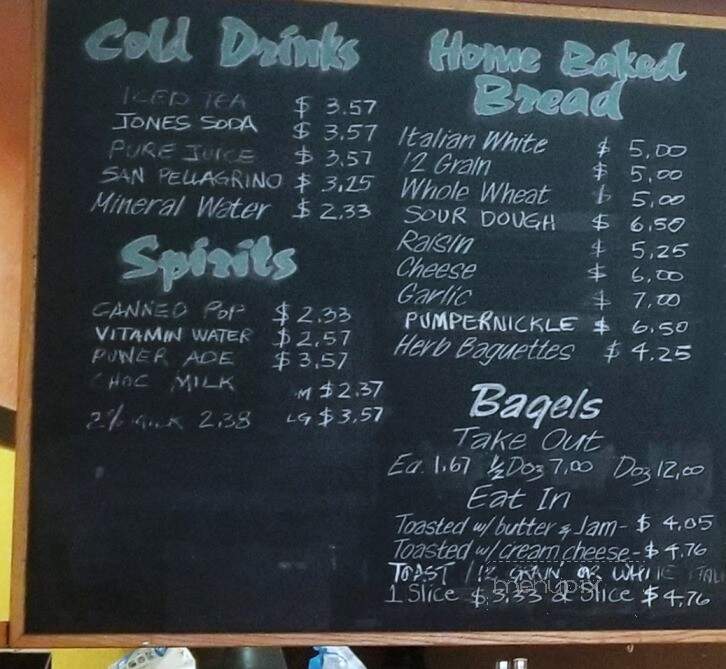 Cold Drinks
ICED TEA $ 3.57
JONES SODA $ 3.57
PURE JUICE $ 3.57
SAN PELLAGRINO $ 3.25
Mineral Water $ 2.33
Spirits
CANNED POP $ 2.33
VITAMIN WATER $ 2.57
POWER ADE $ 3.57
CHOC MILK M $ 2.37
2% MILK 2.38 LG $ 3.57
Home Baked
Bread
Italian White $ 5.00
12 Grain $ 5.00
Whole Wheat $ 5.00
SOUR DOUGH $ 6.50
Raisin $ 5.25
Cheese $ 6.00
Garlic $ 7.00
PUMPERNICKLE $ 6.50
Herb Baguettes $ 4.25
Bagels
Take Out
Ea. 1.67 ½ Doz 7.00 Doz 12.00
Eat In
Toasted w/ butter & Jam - $ 4.05
Toasted w/ cream cheese - $ 4.76
TOAST 12 GRAIN OR WHITE
1 Slice $ 3.33 2 Slice $ 4.76
menupix